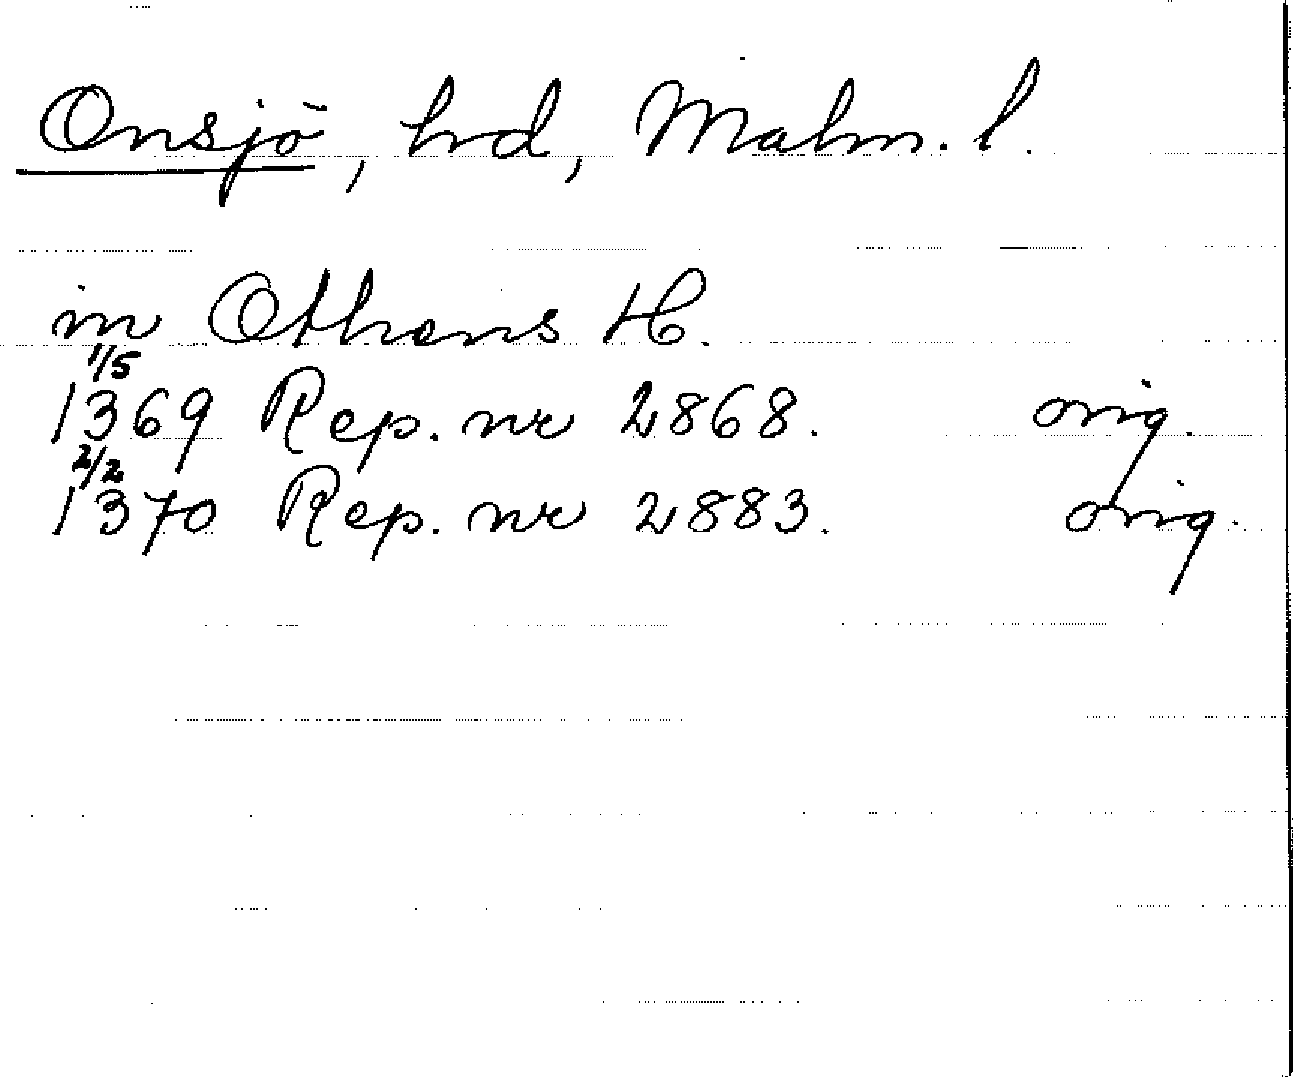 Onsjö, hrd, Malm. l.
in Othens H.
1/5
1369 Rep. nr 2868. orig.
2/2
1370 Rep. nr 2883. orig.